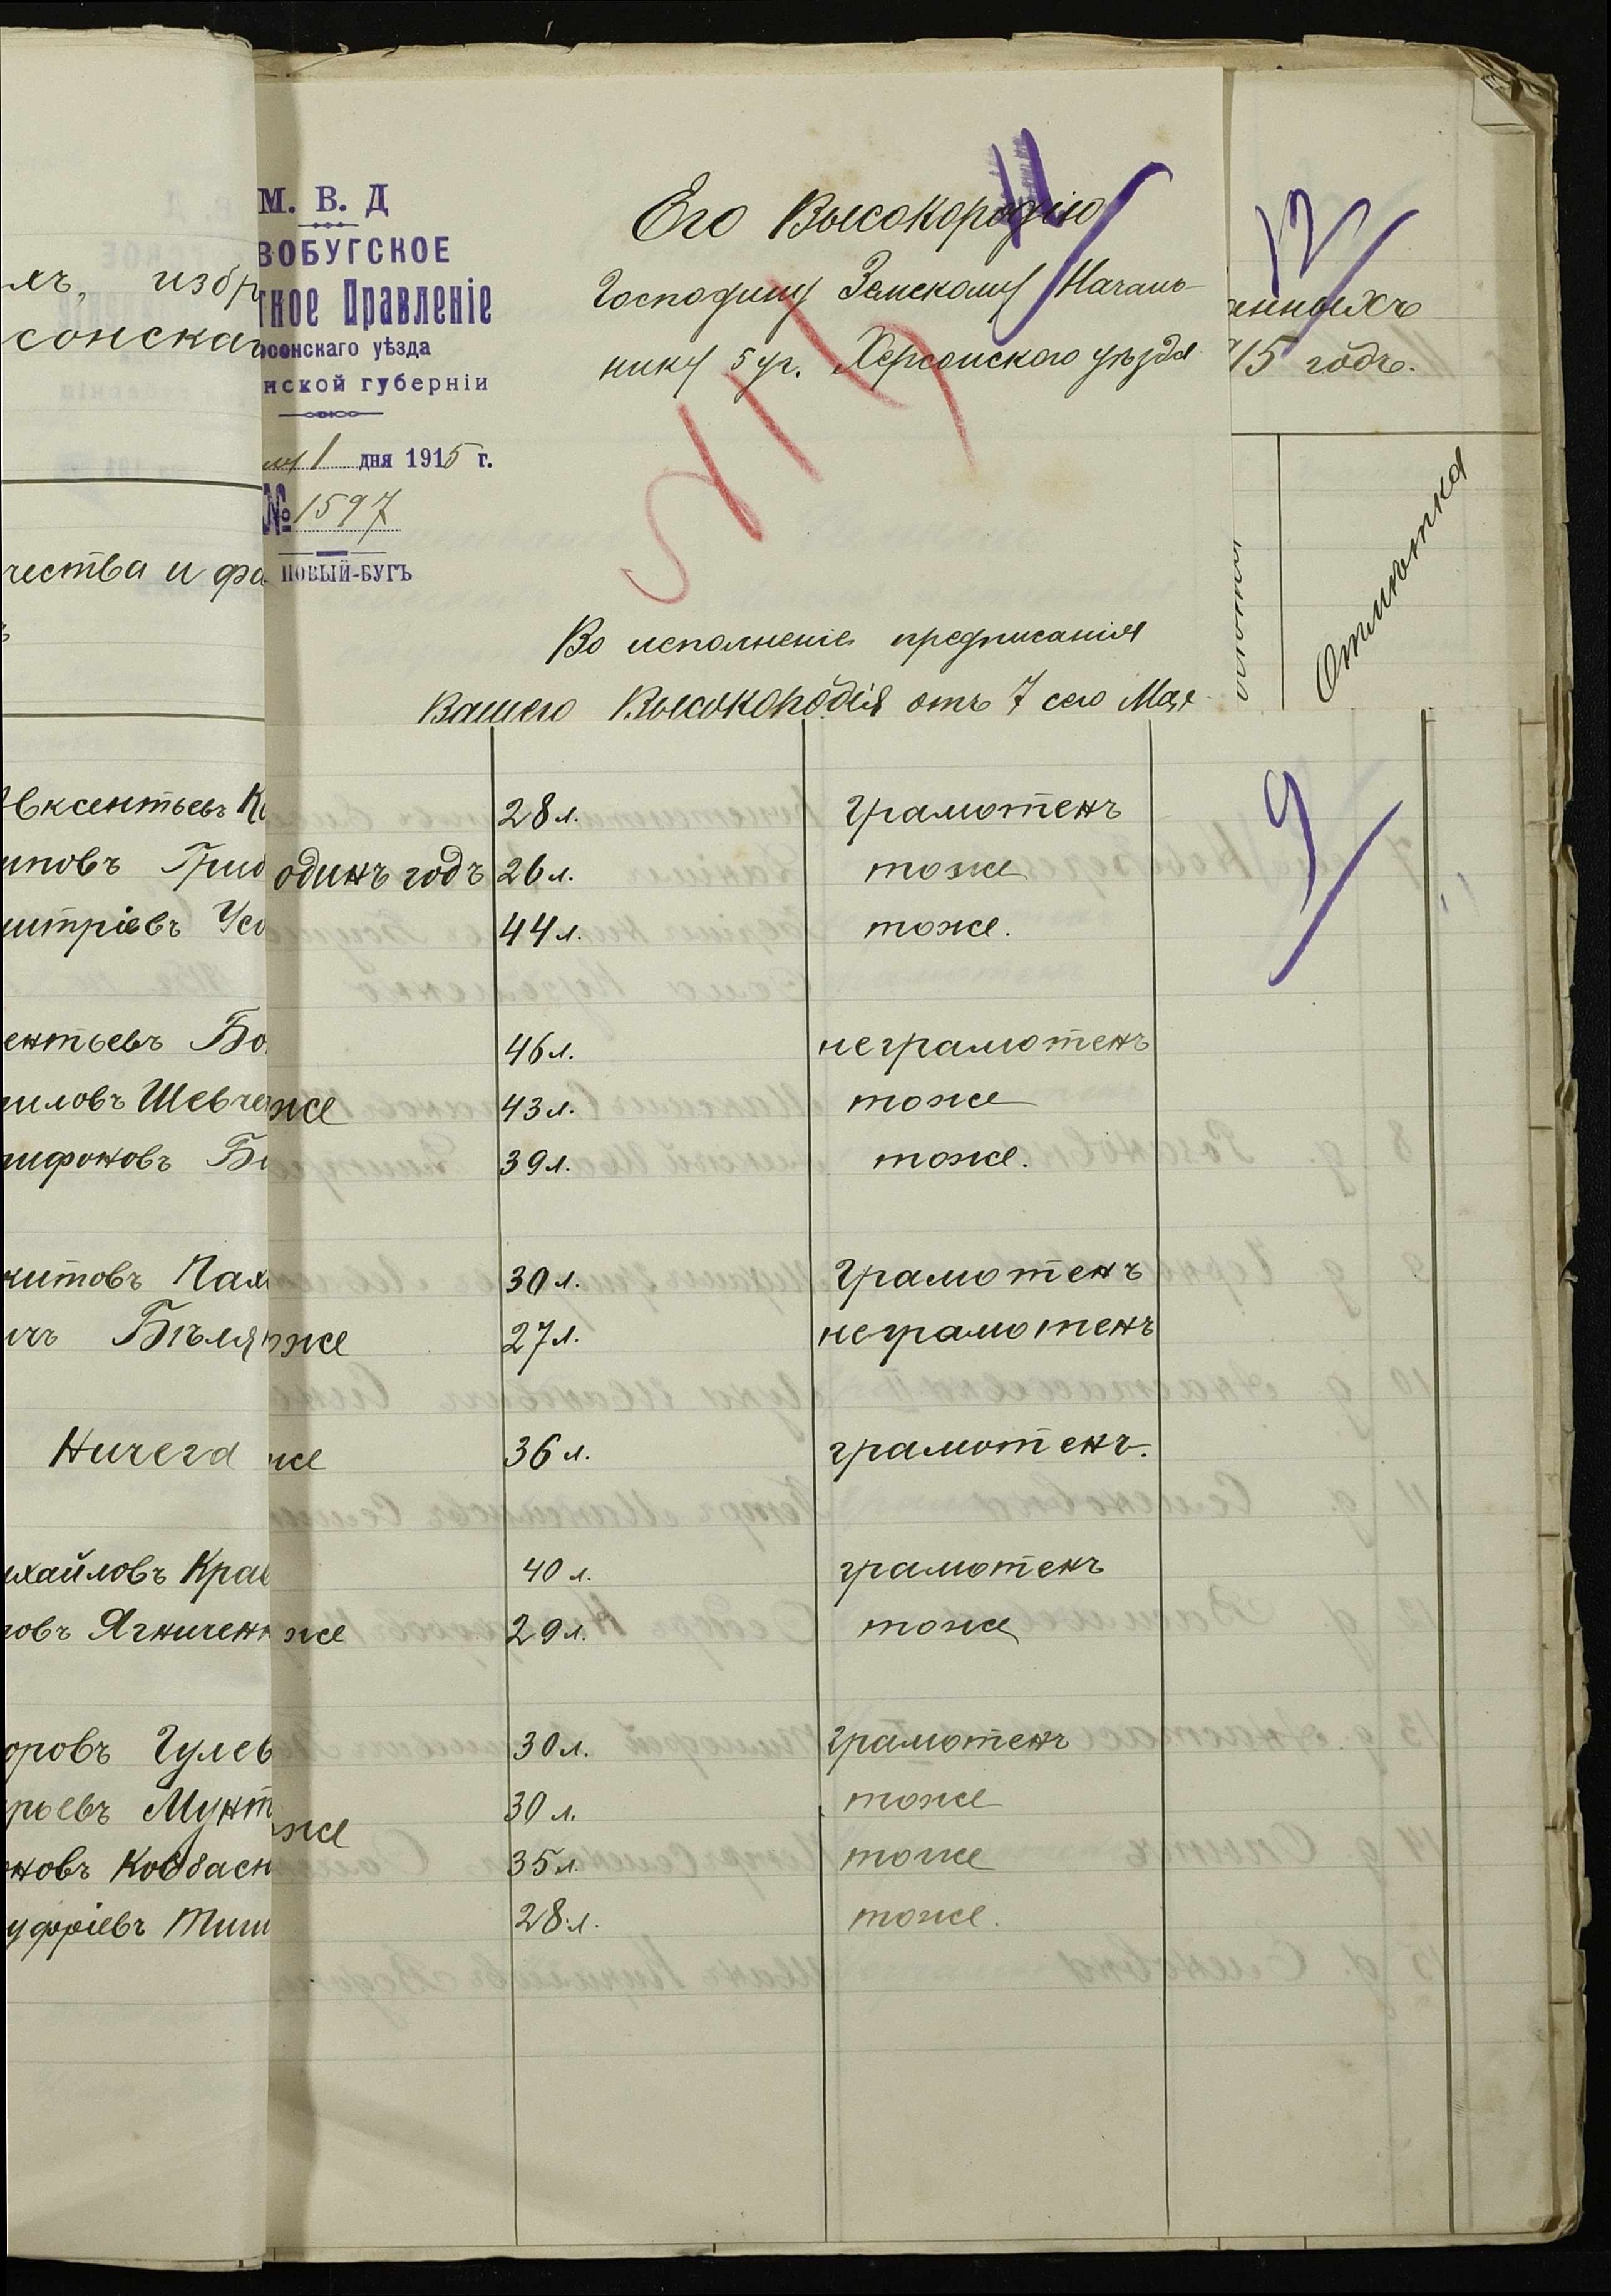 М. В. Д
ВОБУГСКОЕ
ное Правленіе
сонскаго уѣзда
нской губерніи
1 дня 1915 г.
№ 1597
НОВЫЙ-БУГЪ
11
Его Высокородію
Господину Земскому Началь-
нику 5 уч. Херсонскаго уѣзда
Во исполненіе предписанія
Вашего Высокородія отъ 7 сего Мая
12
анныхъ
15 годъ.
Отмѣтка
лъ, избр
сонскаг
чества и фа
9
Авксентьевъ Ко 28 л. грамотенъ
иповъ Гриб одинъ годъ 26 л. тоже
митріевъ Усо 44 л. тоже.
ентьевъ Бо 46 л. неграмотенъ
иловъ Шевче же 43 л. тоже
рифоновъ Би 39 л. тоже.
китовъ Пах 30 л. грамотенъ
ичъ Бѣля же 27 л. неграмотенъ
Ничега же 36 л. грамотенъ.
ихайловъ Крав 40 л. грамотенъ
ровъ Ягниченк же 29 л. тоже
оровъ Гулев 30 л. грамотенъ
рьевъ Мунт же 30 л. тоже
новъ Ковбасн 35 л. тоже
уфріевъ Тиш 28 л. тоже.